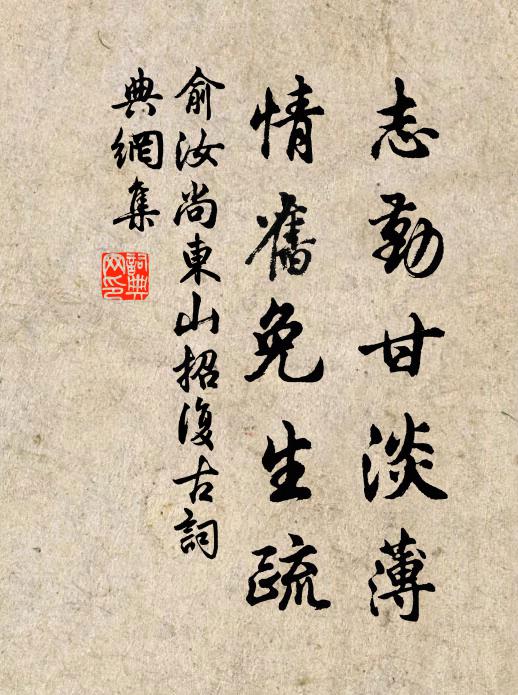 志勤甘淡薄
情舊免生疏
俞汝尚東山招復古詞
典網集
詞典網印